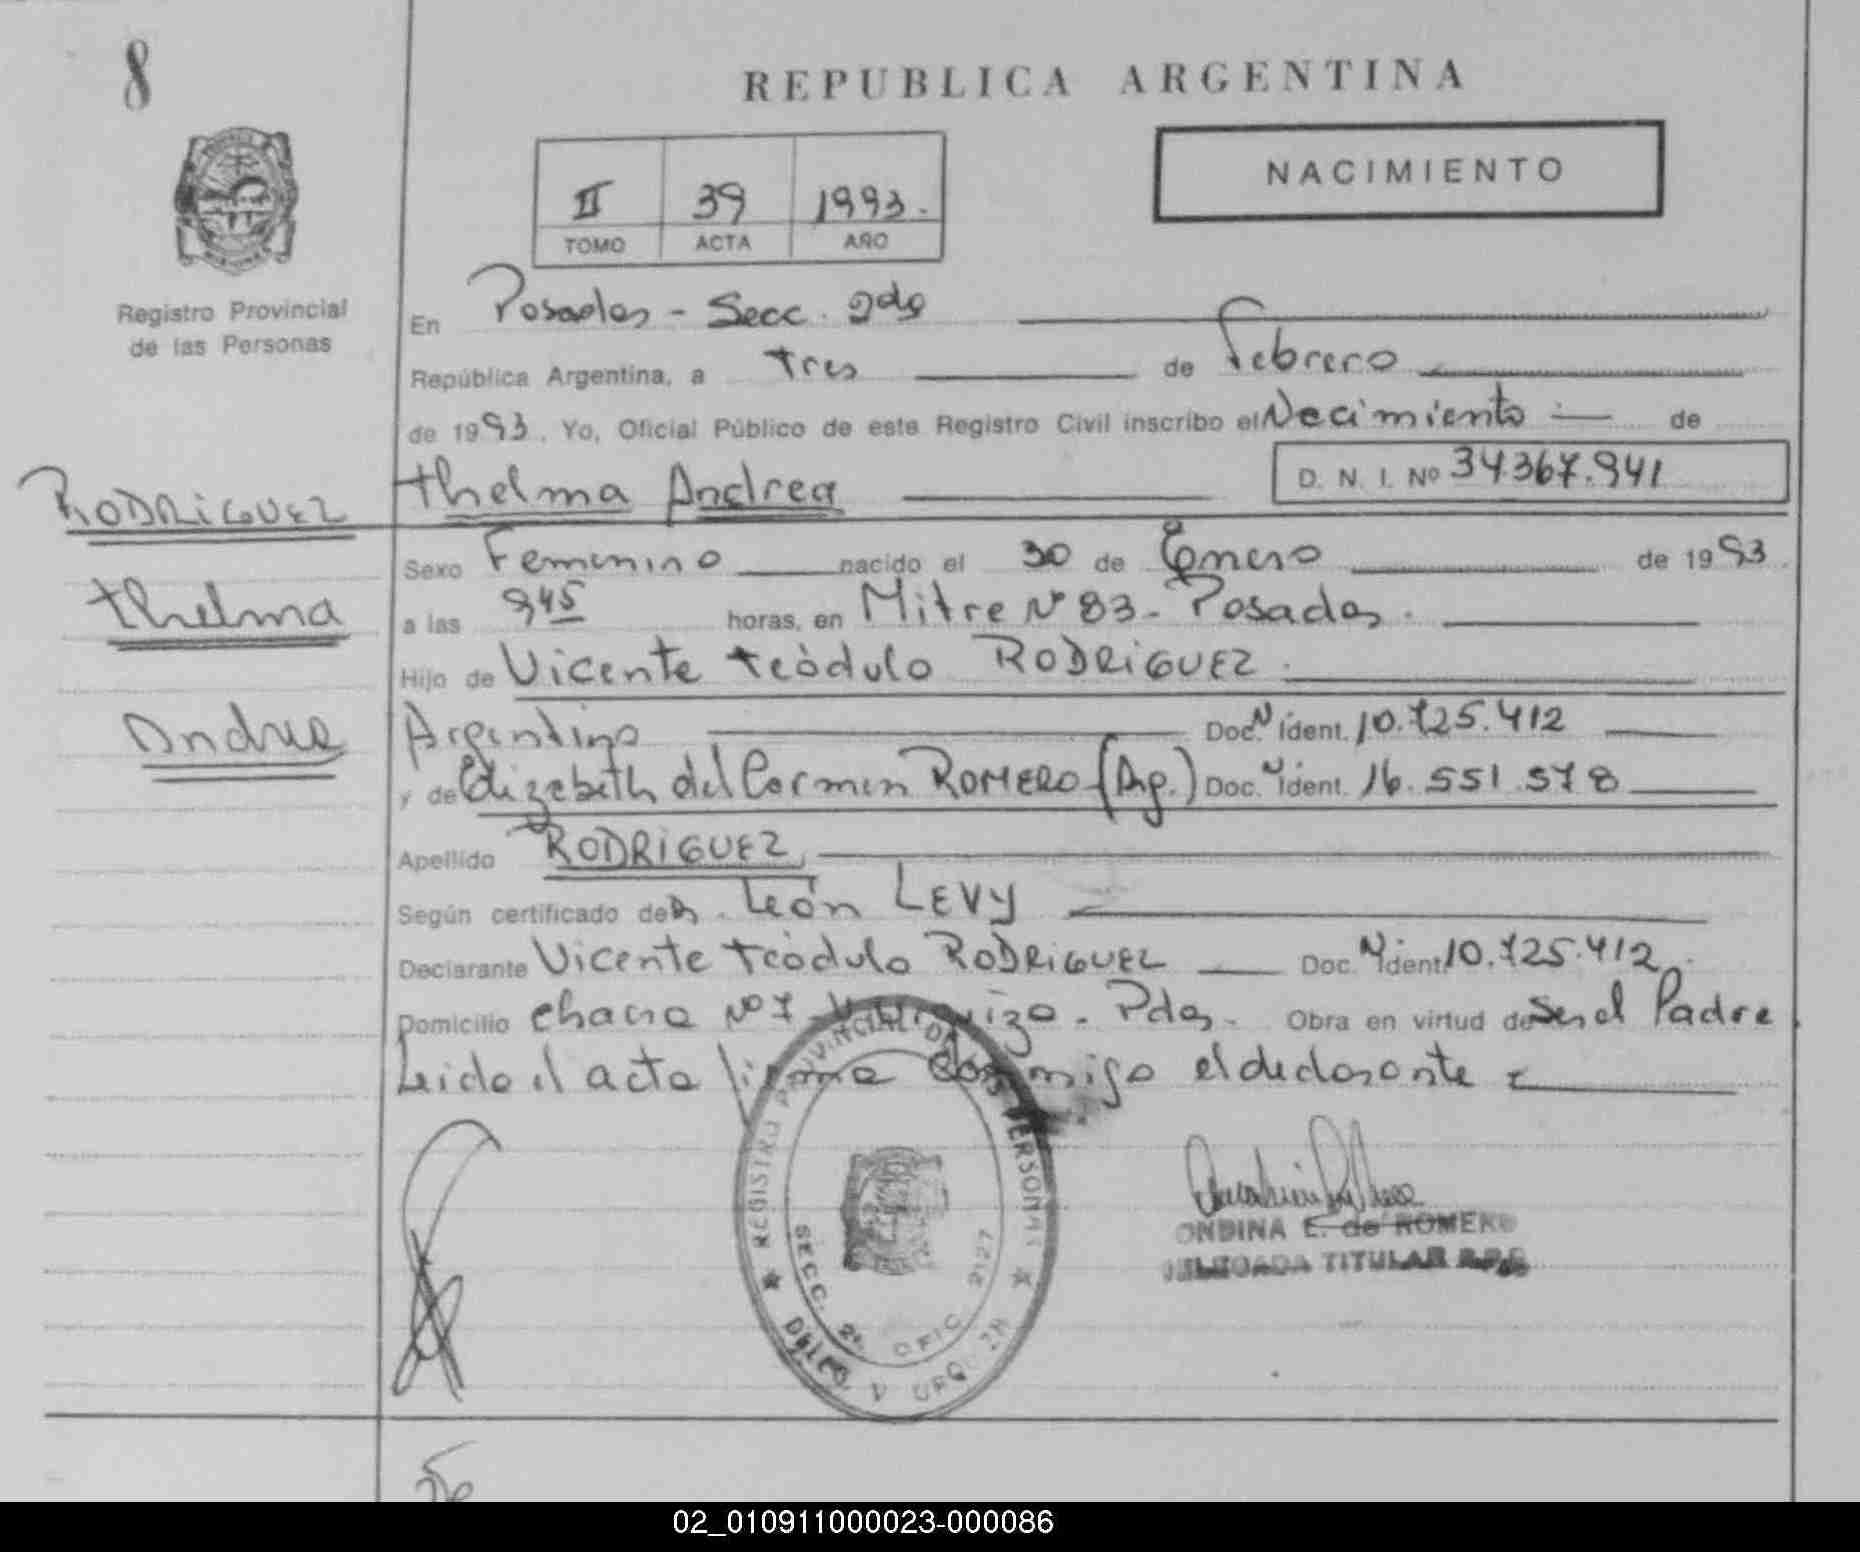 8
REPUBLICA ARGENTINA
NACIMIENTO
II 39 1993.
TOMO ACTA AÑO
Registro Provincial
de las Personas
En Posadas - Secc. 2da
República Argentina, a tres de Febrero
de 1993. Yo, Oficial Público de este Registro Civil inscribo el Nacimiento de
RODRIGUEZ
thelma
Andrea
thelma Andrea D. N. I. Nº 34.367.941
Sexo Femenino nacido el 30 de Enero de 1993.
a las 9 45 horas, en Mitre Nº 83 - Posadas.
Hijo de Vicente teódulo RODRIGUEZ.
Argentino Doc. N ident. 10.725.412
y de Elizabeth del Carmen ROMERO (Arg.) Doc. N ident. 16.551.578
Apellido RODRIGUEZ
Según certificado de Dr. León LEVY
Declarante Vicente teódulo RODRIGUEZ Doc. N ident 10.725.412.
Domicilio chacra Nº 7 Pdas. Obra en virtud de Ser el Padre
Leido el acta firma conmigo el declarante
REGISTRO PROVINCIAL DE LAS PERSONAS
SECC. 2ª OFIC. 2127
DELEG. V URQUIZA
ONDINA E. de ROMERO
DELEGADA TITULAR R.P.P.
02_010911000023-000086